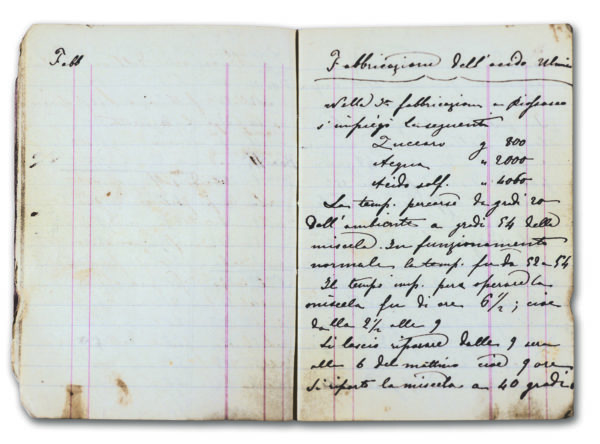 Febb
Fabbricazione dell'acido Ulmico
Nella 3a fabbricazione a Piofasso
s'impiegò la seguente
Zuccaro g 800
Acqua " 2000
Acido solf. " 4060
La temp. percorse da gradi 20
dell'ambiente a gradi 54 della
miscela. In funzionamento
normale la temp. fu da 52 a 54
Il tempo imp. per operare la
miscela fu di ore 6 1/2; cioè
dalla 2 1/2 alle 9
Si lasciò riposare dalle 9 sera
alle 6 del mattino cioè 9 ore
Si riportò la miscela a 40 gradi